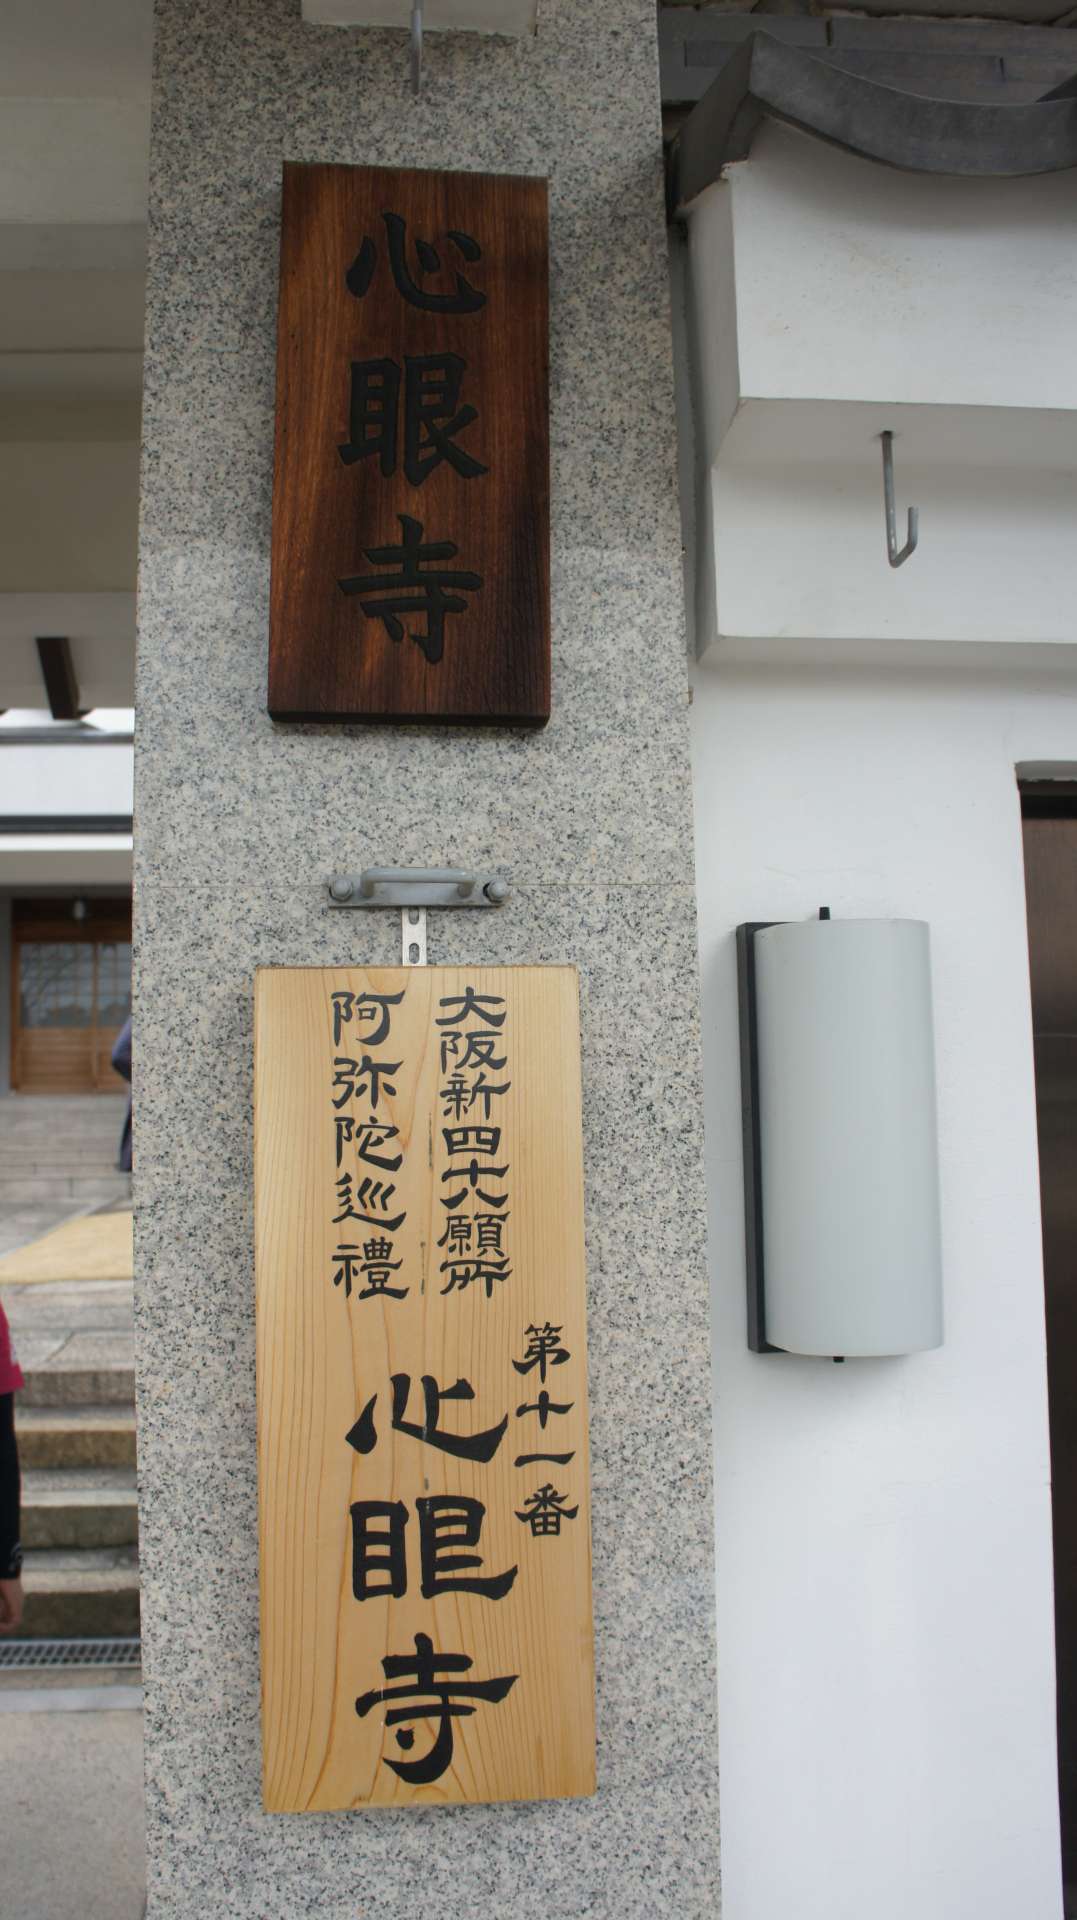 心眼寺
大阪新四十八願所
阿弥陀巡禮
第十一番
心眼寺